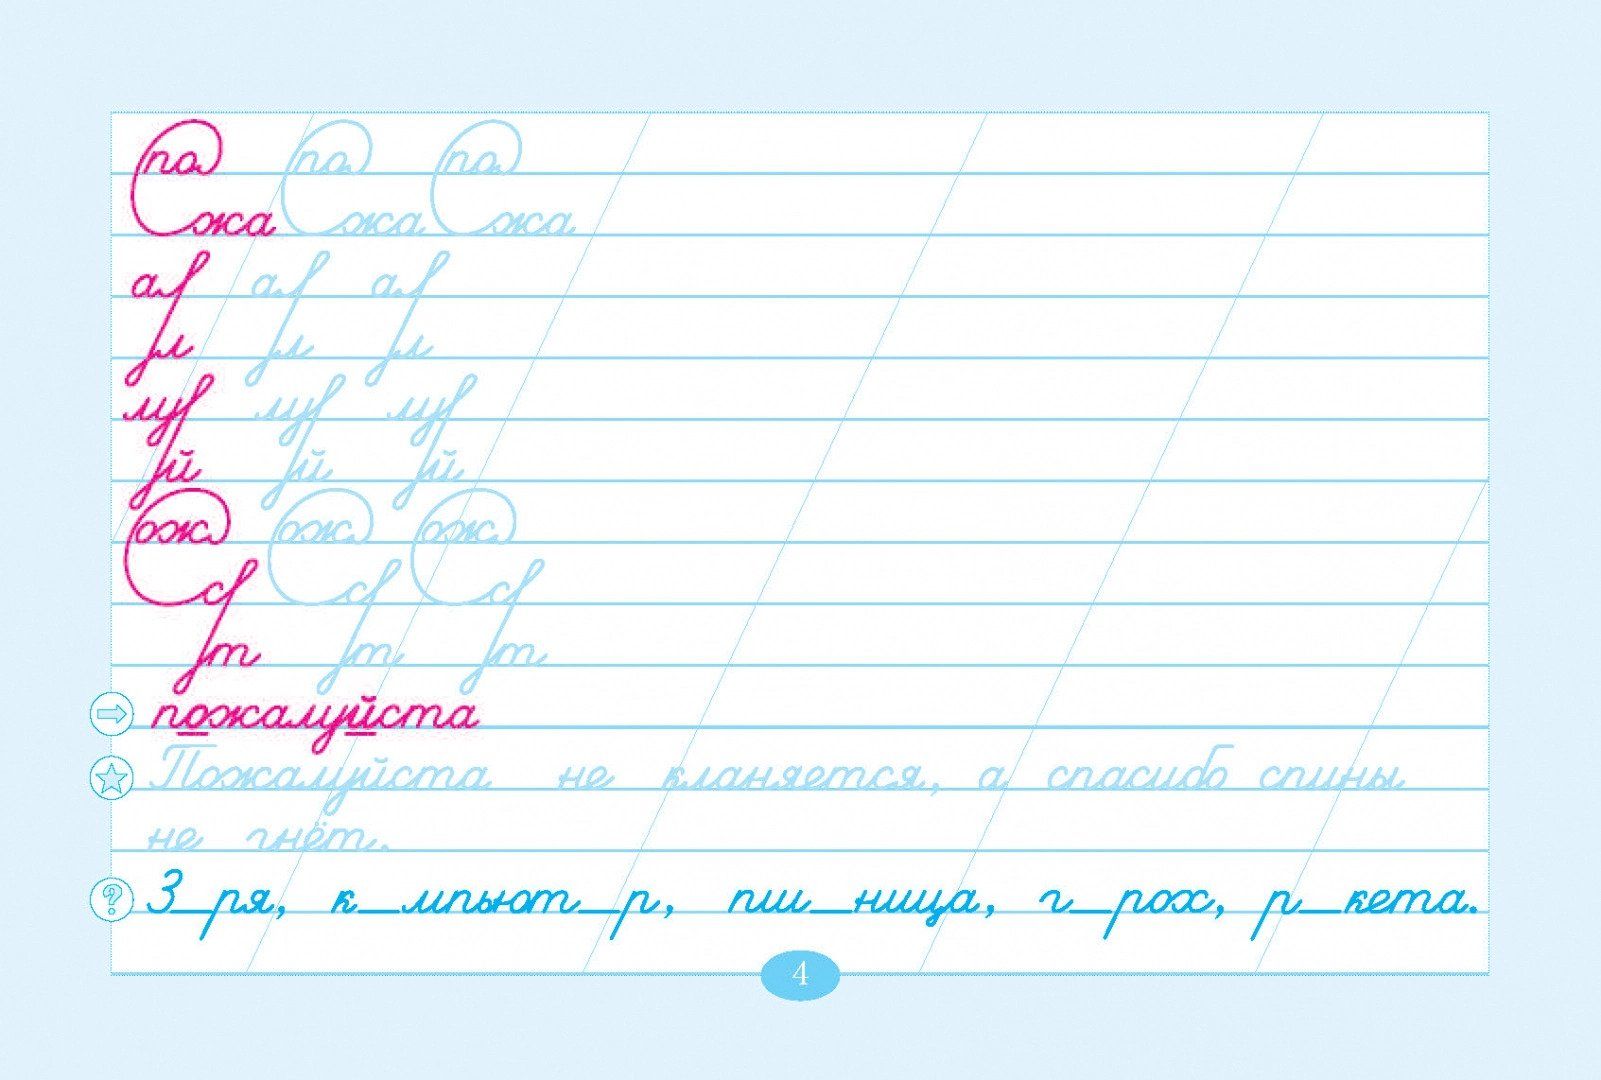 по по по
жа жа жа
а а а
л л л
лу лу лу
й й й
ож ож ож
с с с
т т т
пожалуйста
Пожалуйста не кланяется, а спасибо спины
не гнёт.
З_ря, к_мпьют_р, пш_ница, г_рох, р_кета.
4